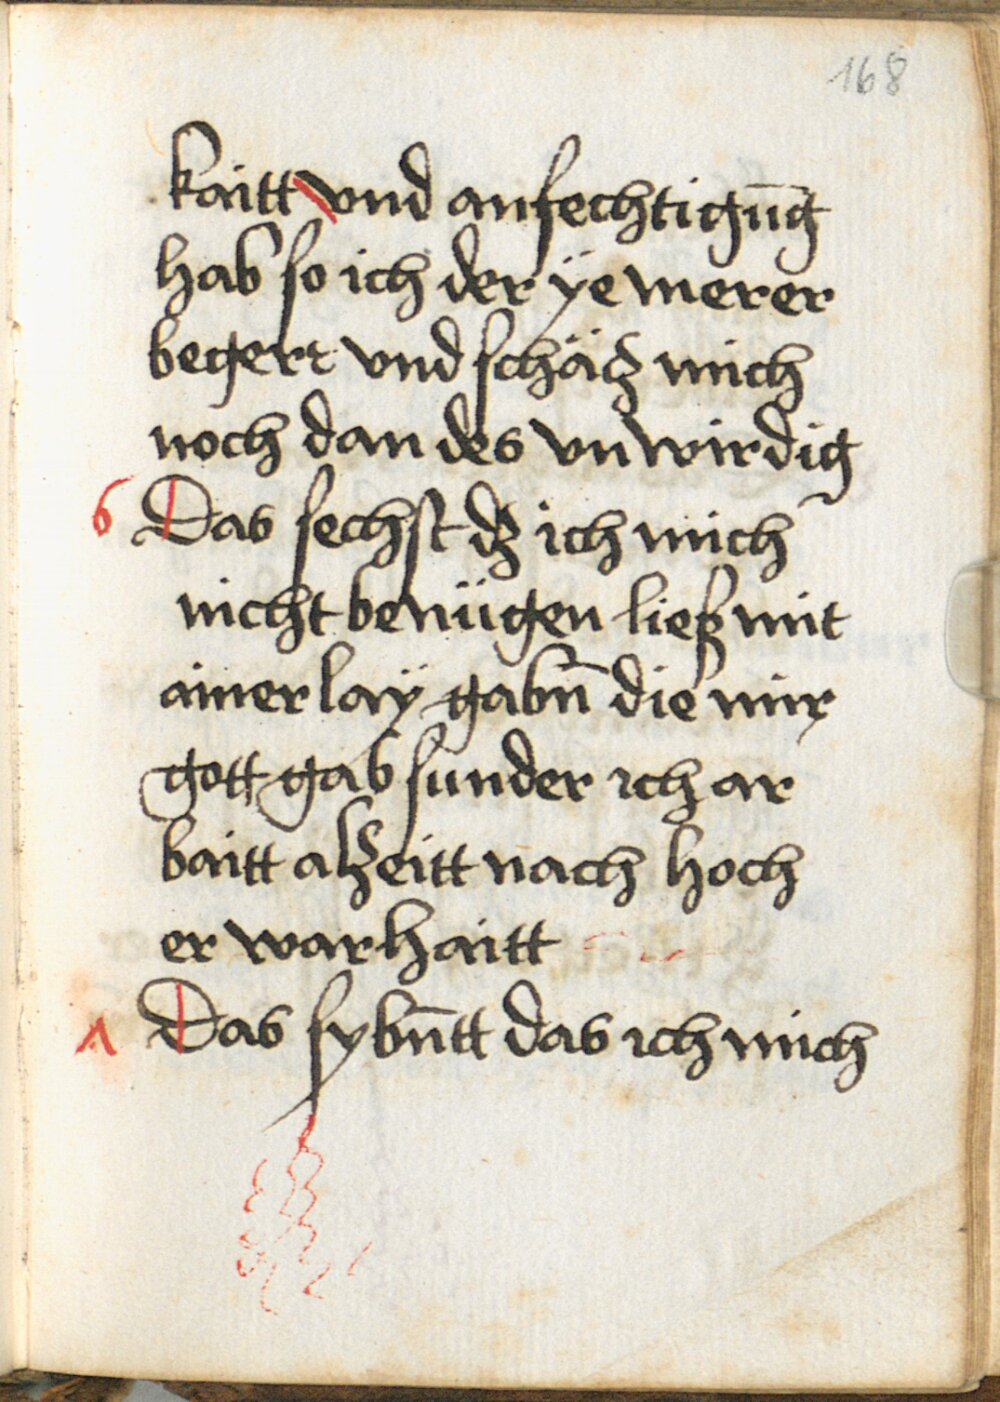 168
kaitt vnd anfechtigūg
hab so ich der ÿe merer
begert vnd schäcz mich
noch dan des vnwirdig
6 Das sechst dz ich mich
nicht benügen ließ mit
ainer laÿ gabn̄ die mir
gott gab sunder ich ar
baitt alzeitt nach hoch
er warhaitt
Λ Das sybn̄tt das ich mich